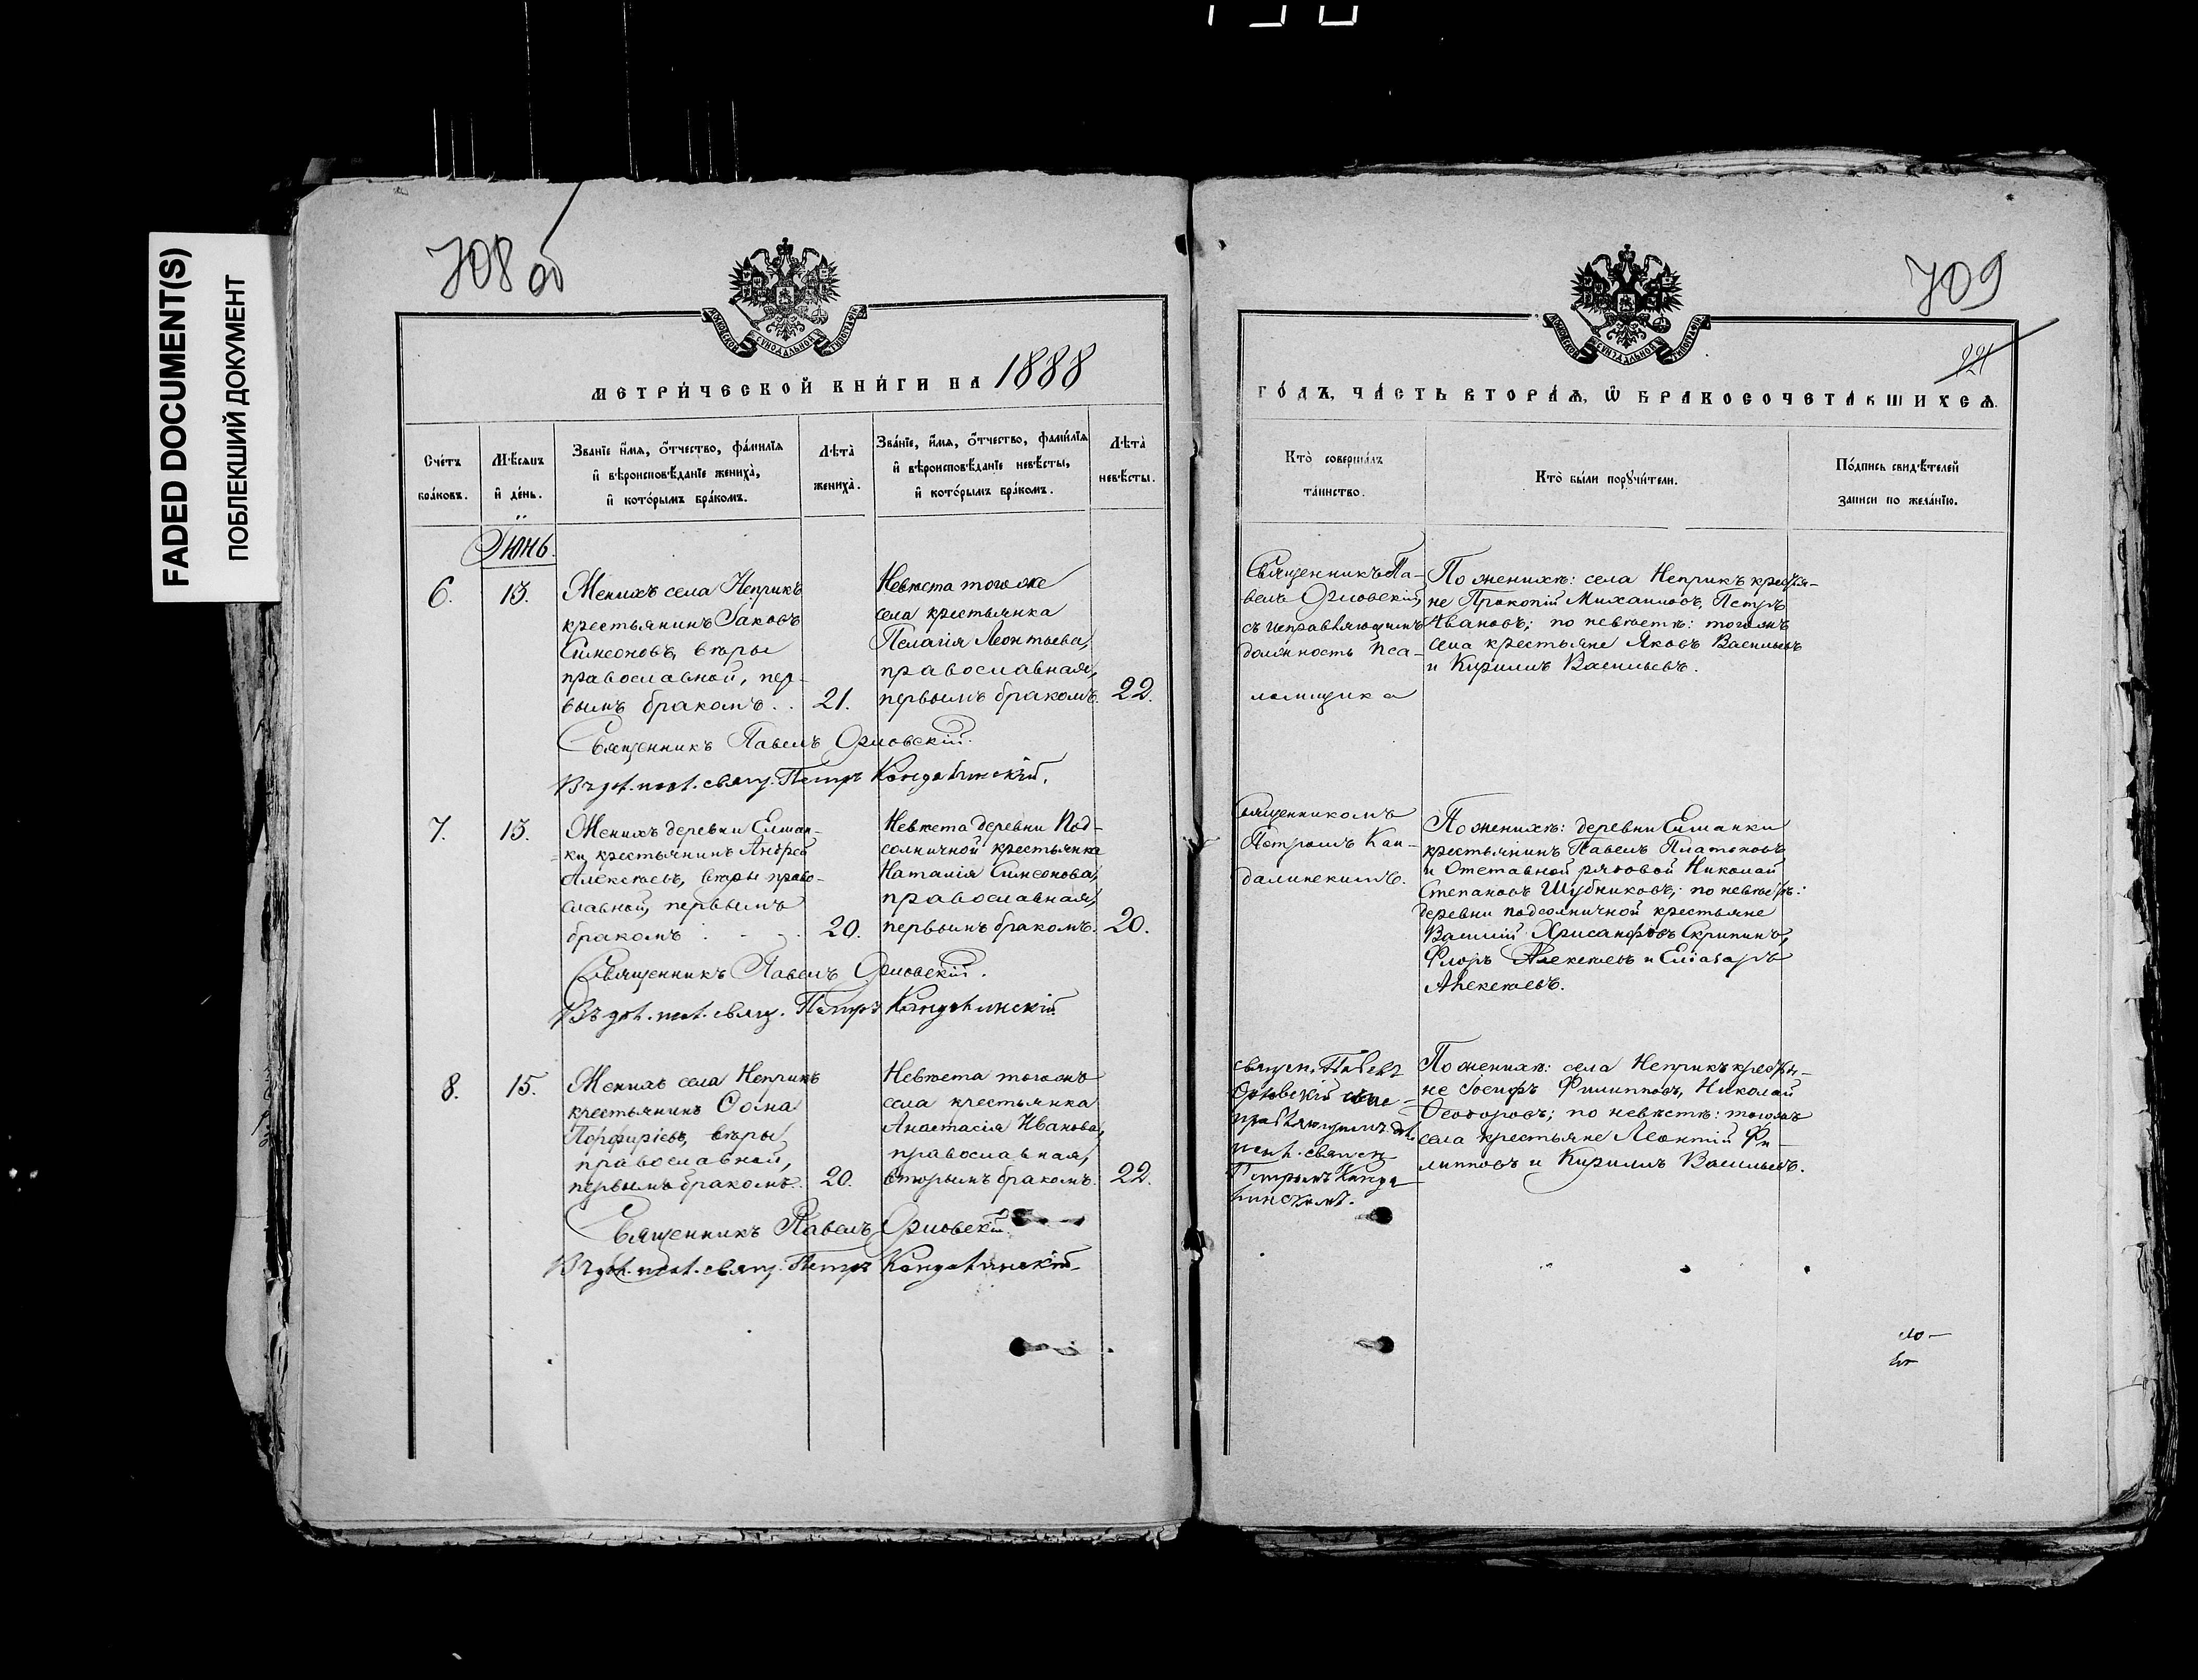 FADED DOCUMENT(S)
ПОБЛЕКШИЙ ДОКУМЕНТ
708 об
МОСКОВСКОЙ СѴНОДАЛЬНОЙ ТИПОГРАФІИ
МЕТРИ́ЧЕСКОЙ КНИ́ГИ НА 1888
Сче́тъ
бра́ковъ.
Мѣ́сяцъ
и҆ де́нь.
Зва́нїе и҆́мѧ, ѻ҆́тчество, фамилїѧ
и҆ вѣроисповѣ́данїе жениха̀,
и҆ кото́рымъ бра́комъ.
Лѣта̀
жениха̀.
Зва́нїе, и҆́мѧ, ѻ҆́тчество, фамилїѧ
и҆ вѣроисповѣ́данїе невѣ́сты,
и҆ кото́рымъ бра́комъ.
Лѣта̀
невѣ́сты.
Іюнь.
6.
13.
Женихъ села Неприкъ
крестьянинъ Іаковъ
Симеоновъ, вѣры
православной, пер-
вымъ бракомъ. .
21.
Невѣста тогоже
села крестьянка
Пелагія Леонтьева,
православная,
первымъ бракомъ.
22.
Священникъ Павелъ Орловскій.
свящ. Петръ Кандалинскій.
7.
13.
Женихъ деревни Елшан-
ки крестьянинъ Андрей
Алексѣевъ, вѣры право-
славной, первымъ
бракомъ
20.
Невѣста деревни Под-
солничной крестьянка
Наталія Симеонова,
православная,
первымъ бракомъ.
20.
Священникъ Павелъ Орловскій.
свящ. Петръ Кандалинскій
8.
15.
Женихъ села Неприкъ
крестьянинъ Ѳома
Порфиріевъ, вѣры
православной,
первымъ бракомъ.
20.
Невѣста тогожъ
села крестьянка
Анастасія Иванова,
православная,
вторымъ бракомъ.
22.
Священникъ Павелъ Орловскій.
свящ. Петръ Кандалинскій.
709
МОСКОВСКОЙ СѴНОДАЛЬНОЙ ТИПОГРАФІИ
ГО́ДЪ, ЧА́СТЬ ВТОРА́Ѧ, Ѽ БРАКОСОЧЕТА́ВШИХСѦ.
Кто̀ соверша́лъ
та́инство.
Кто̀ бы́ли порꙋчи́тели.
По́дпись свидѣ́телей
записи по жела́нїю.
Священникъ Па-
велъ Орловскій,
съ исправляющимъ
должность пса-
ломщика
По женихѣ: села Неприкъ крестья-
не Прокопій Михаиловъ, Петръ
Ивановъ; по невѣстѣ: тогожъ
села крестьяне Яковъ Васильевъ
и Кириллъ Васильевъ.
Священникомъ
Петромъ Кан-
далинскимъ.
По женихѣ: деревни Елшанки
крестьянинъ Павелъ Платоновъ
и Отставной рядовой Николай
Степановъ Шубниковъ; по невѣстѣ:
деревни подсолничной крестьяне
Василій Хрисанфовъ Скрипинъ,
Флоръ Алексѣевъ и Еліазаръ
Алексѣевъ.
священ. Павелъ
Орловскій
Петромъ Канда
линскимъ.
По женихѣ: села Неприкъ крестья-
не Іосифъ Филипповъ, Николай
Ѳеодоровъ; по невѣстѣ: тогожъ
села крестьяне Леонтій Фи-
липповъ и Кириллъ Васильевъ.